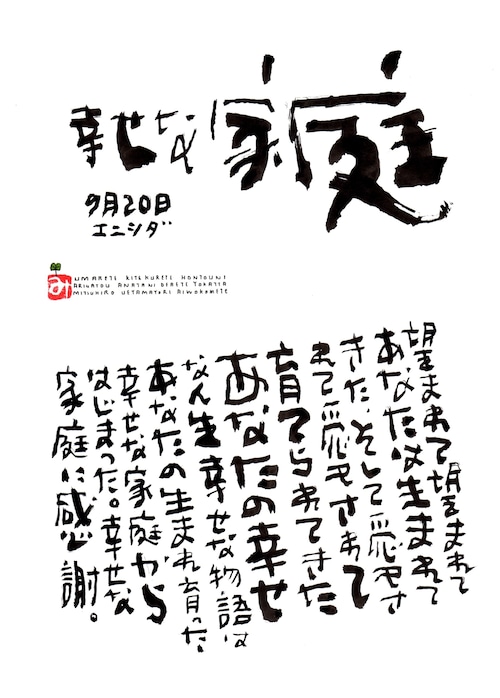 幸せな家庭
9月20日
エニシダ
み
UMARETE KITEKURETE HONTOUNI
ARIGATOU ANATANI DEAETE YOKATTA
MITSUHIRO UETAMATORI AIWOKOMETE
望まれて望まれて
あなたは生まれて
きた、そして愛さ
れて愛されて
育てられてきた
あなたの幸せ
な人生幸せな物語は
あなたの生まれ育った
幸せな家庭から
はじまった。幸せな
家庭に感謝。